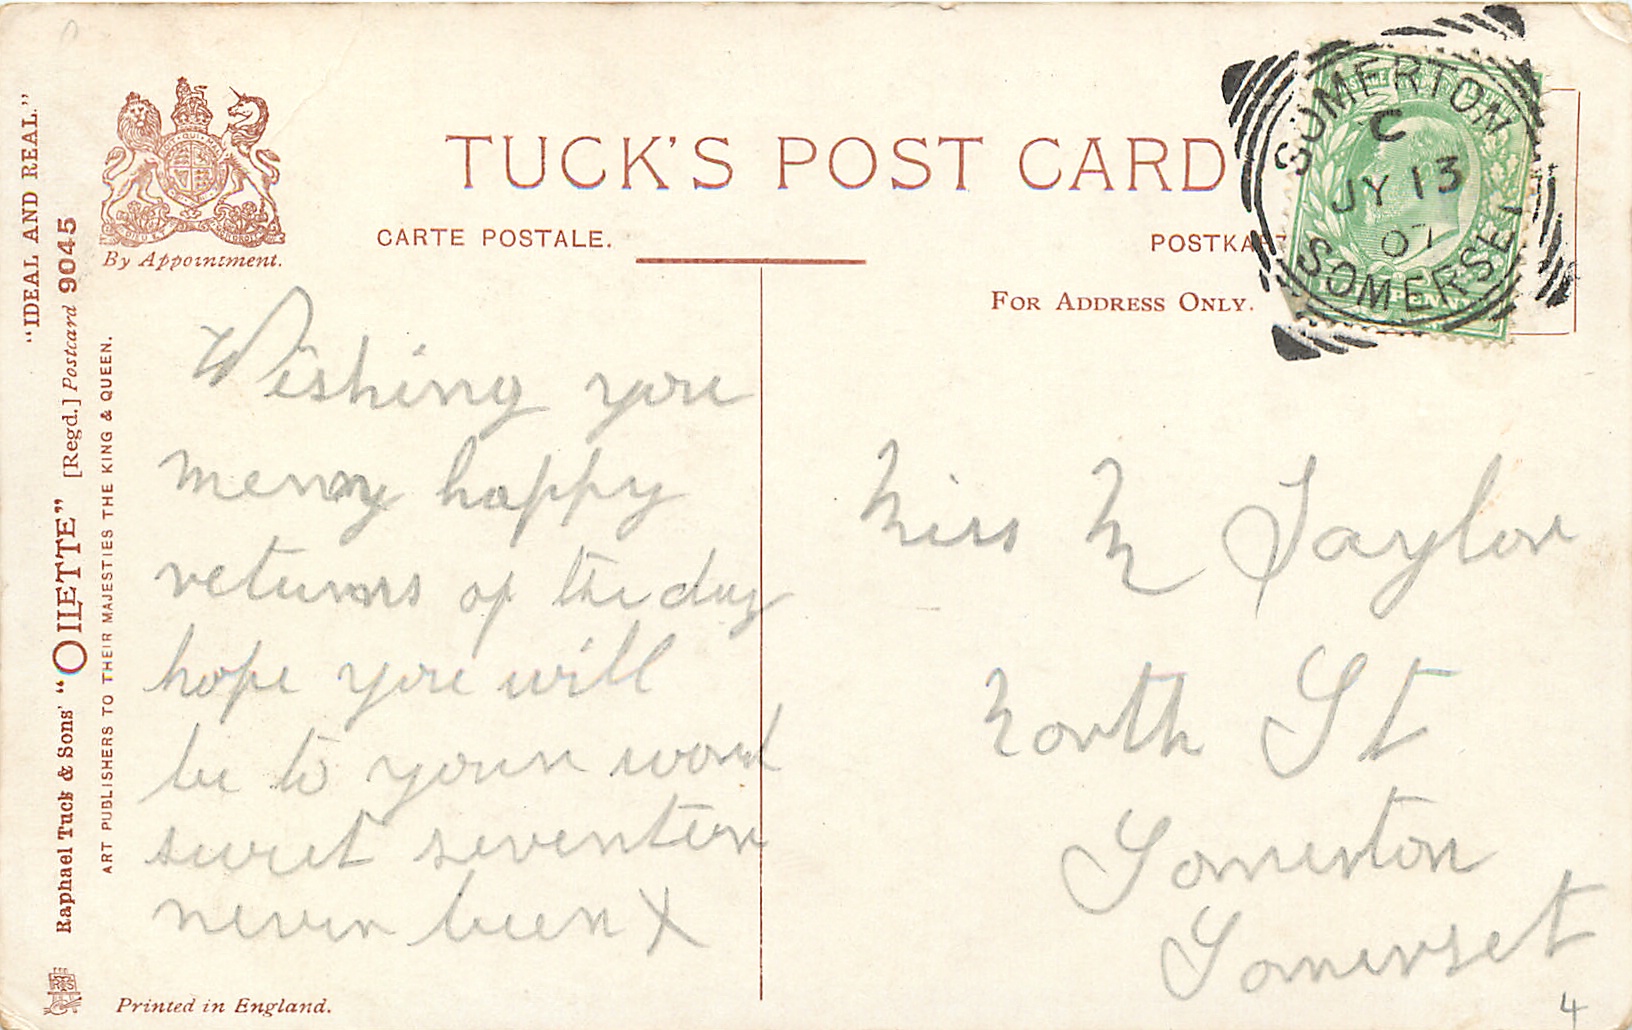 TUCK'S POST CARD
CARTE POSTALE.
POSTKA
By Appointment.
FOR ADDRESS ONLY.
SOMERTON
C
JY 13
07
SOMERSET
PENNY
"IDEAL AND REAL."
Raphael Tuck & Sons' "OILETTE" [Regd.] Postcard 9045
ART PUBLISHERS TO THEIR MAJESTIES THE KING & QUEEN.
Wishing you
merry happy
returns of the day
hope you will
be to your word
sweet seventeen
never been X
Miss M Taylor
North St
Somerton
Somerset
Printed in England.
4